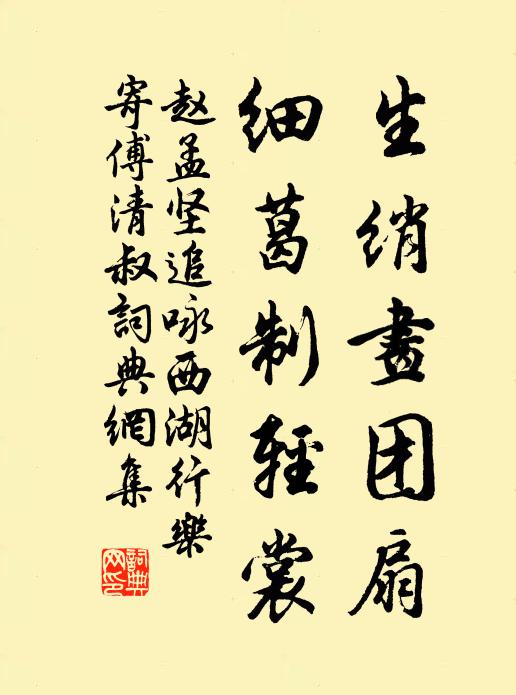 生绡畫团扇
细葛制輕裳
赵孟坚追咏西湖行樂
寄傅清叔詞典網集
詞典
网印